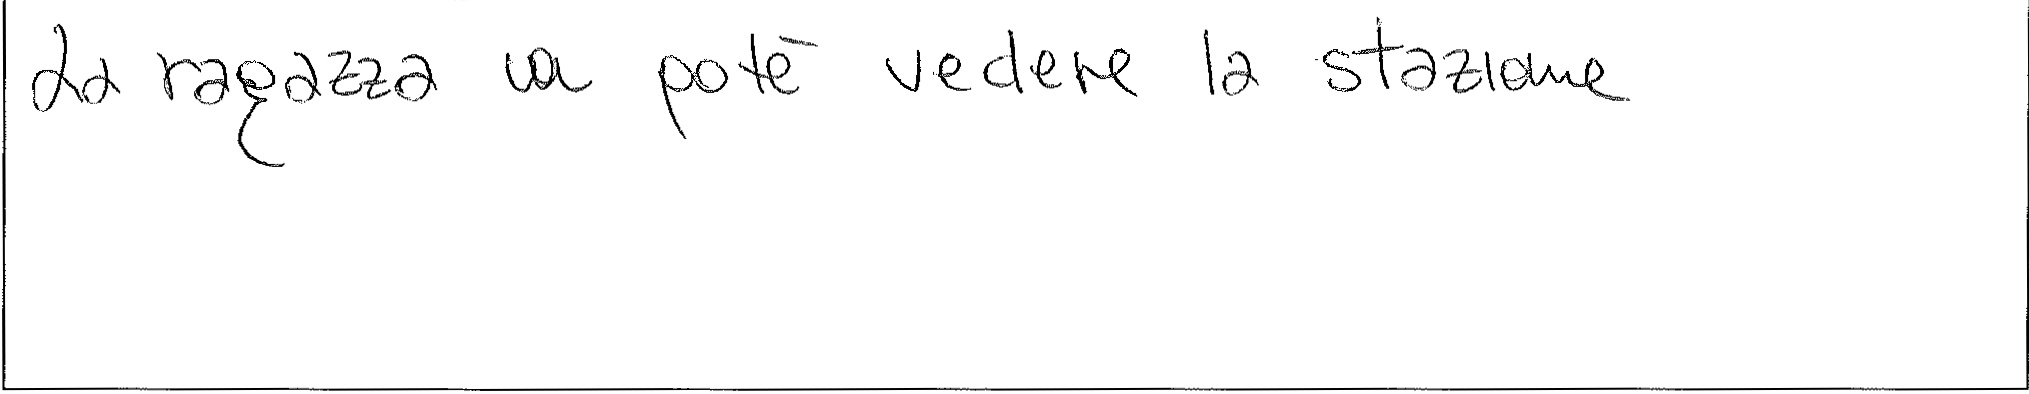 La ragazza potè vedere la stazione